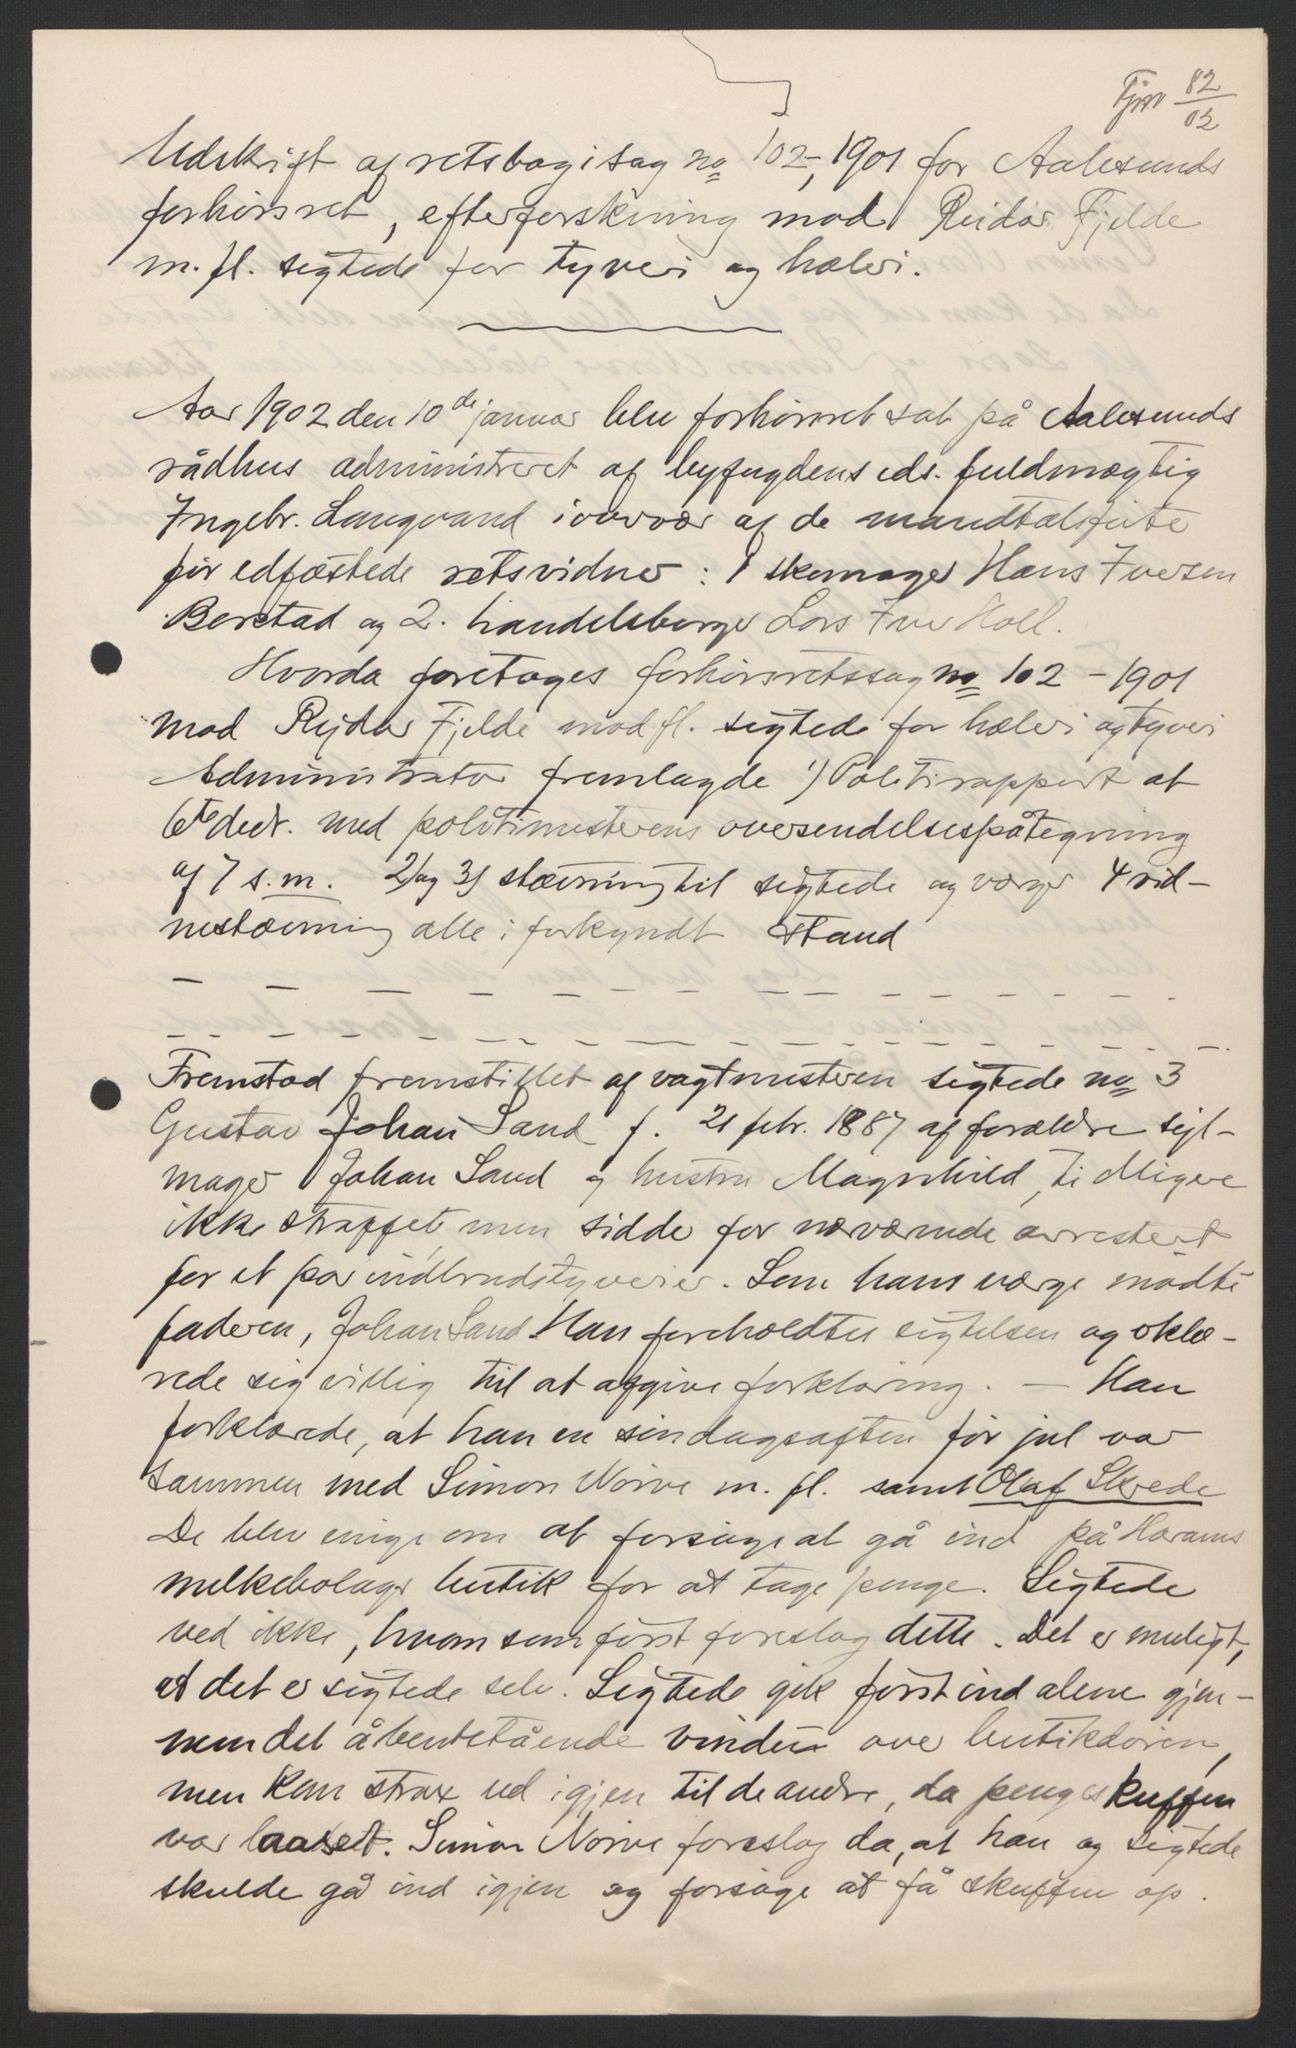 Tjnr 82/02
Udskrift af retsbog i sag no 102, 1901 for Aalesunds
forhørsret, efterforskning mod Reidar Fjelde
m. fl. sigtede for tyveri og hæleri.
Aar 1902 den 10de januar blev forhørsret sat på Aalesunds
rådhus administreret af byfogdens eds. fuldmægtig
Ingebr. Langvand i overvær af de mandtalsførte
før edfæstede retsvidner: 1 skomager Hans Iversen
Berstad og 2. handelsborger Lars Iver Holl.
Hvorda foretages forhørsretssag no 102 - 1901
mod Rejdar Fjelde mod fl. sigtede for hæleri og tyveri
Administrator fremlagde 1) Politirapport af
6te decbr. med politimesterens oversendelsespåtegning
af 7 s.m. 2) og 3) stævning til sigtede og værge 4 vid-
nestævning alle i forkyndt stand
Fremstod fremstillet af vagtmesteren sigtede no 3
Gustav Johan Sand f. 21 febr. 1887 af forældre sejl-
mager Johan Sand og hustru Magnhild, tidligere
ikke straffet men sidder for nærværende arrestert
for et par indbrudstyverier. Som hans værge mødte
faderen, Johan Sand Han foreholdtes sigtelsen og erklæ-
rede sig villig til at afgive forklaring. - Han
forklarede, at han en søndagsaften før jul var
sammen med Simon Nørve m. fl. samt Olaf Skrede
De blev enige om at forsøge at gå ind på Harams
melkebolags butik for at tage penge. Sigtede
ved ikke, hvem som først foreslog dette. Det er muligt,
at det er sigtede selv. Sigtede gik først ind alene gjen-
nem det åbentstående vindu over butikdøren,
men kom strax ud igjen til de andre, da pengeskuffen
var laaset. Simon Nørve foreslog da, at han og sigtede
skulde gå ind igjen og forsøge at få skuffen op.